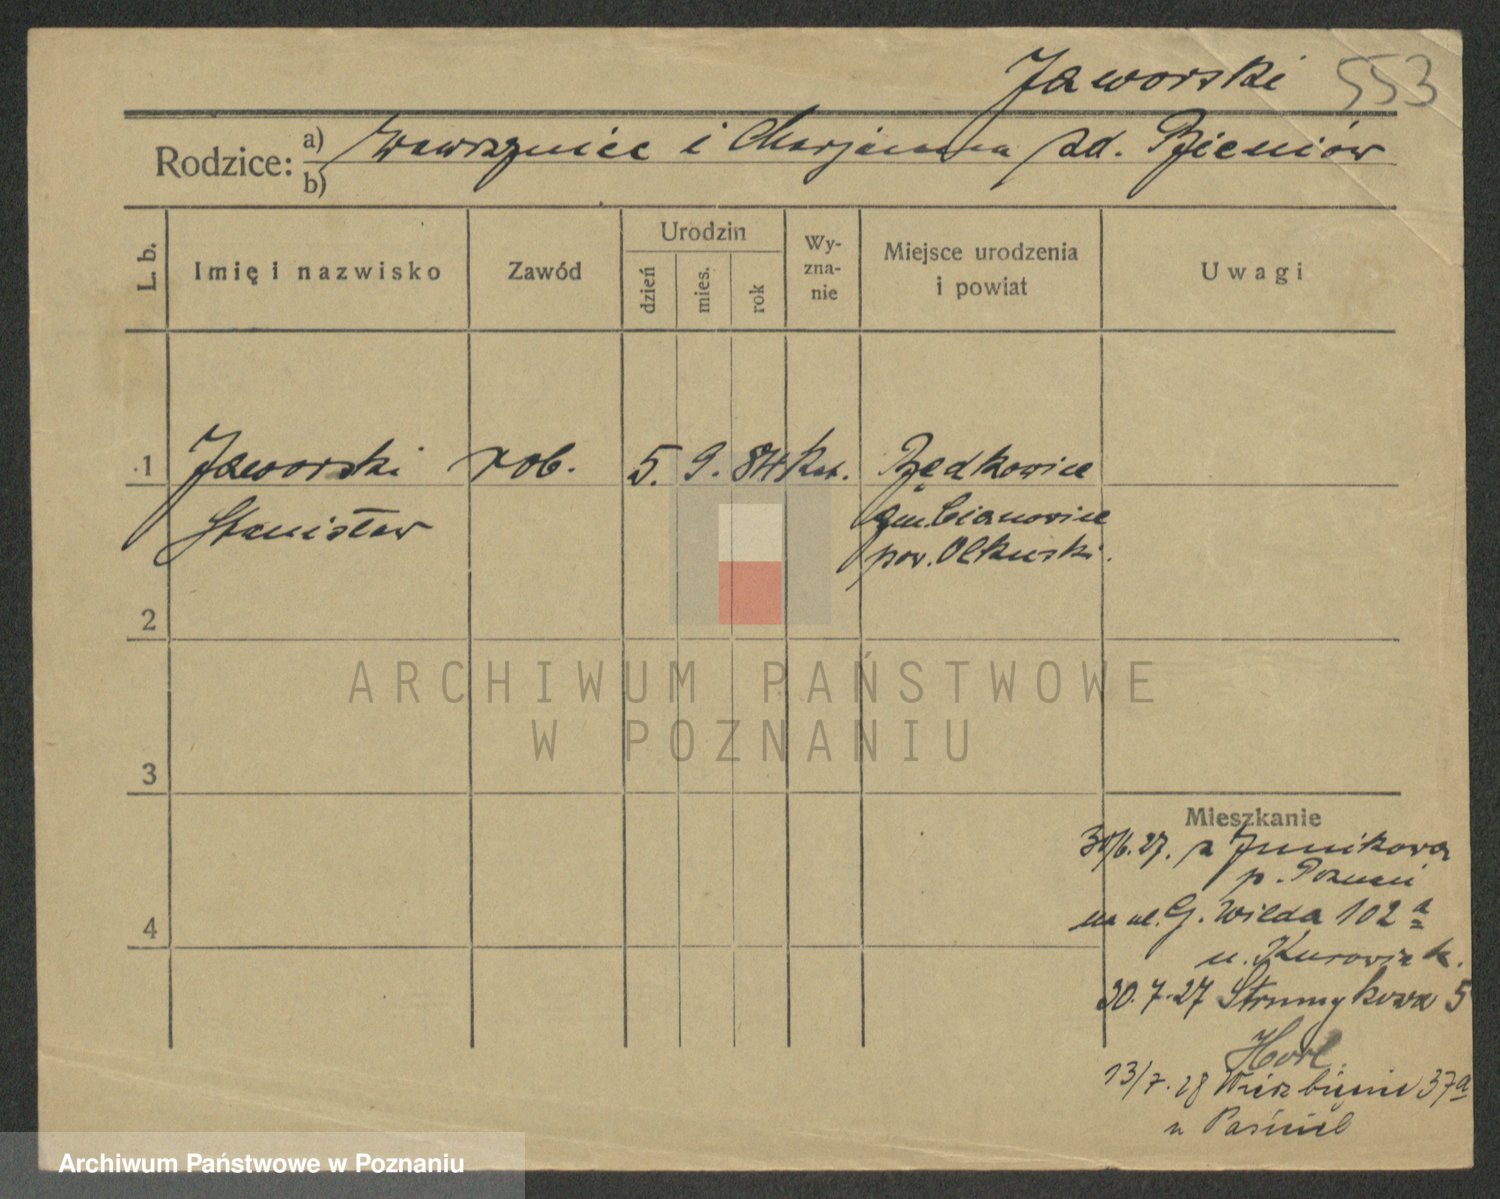 Jaworski 553
Rodzice: a) Wawrzyniec i Marjanna zd. Bieniów
b)
L. b.
Imię i nazwisko
Zawód
Urodzin
dzień
mies.
rok
Wy-
zna-
nie
Miejsce urodzenia
i powiat
Uwagi
1 Jaworski rob. 5. 9. 84 kat.
Stanisław
gm. Cianowice
pow. Olkuski.
2
3
4
Mieszkanie
30/6.27. z Junikowa
p. Poznań
na ul. G. Wilda 102 a
u. Kurowiak.
30.7.27 Strumykowa 5
13/7.28 Wierzbięcie 37a
u
ARCHIWUM PAŃSTWOWE
W POZNANIU
Archiwum Państwowe w Poznaniu